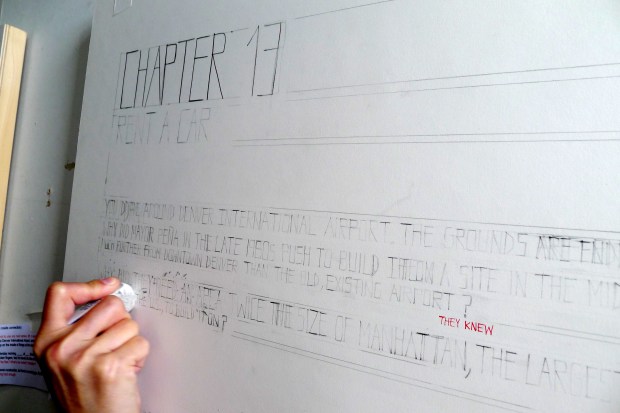 CHAPTER 13
RENT A CAR
YOU DRIVE AROUND DENVER INTERNATIONAL AIRPORT. THE GROUNDS ARE
WHY DID MAYOR PEÑA IN THE LATE 1980S PUSH TO BUILD THE ON A SITE IN THE MID
FURTHER FROM DOWNTOWN DENVER THAN THE OLD, EXISTING AIRPORT?
THEY KNEW
AN AREA TWICE THE SIZE OF MANHATTAN, THE LARGES